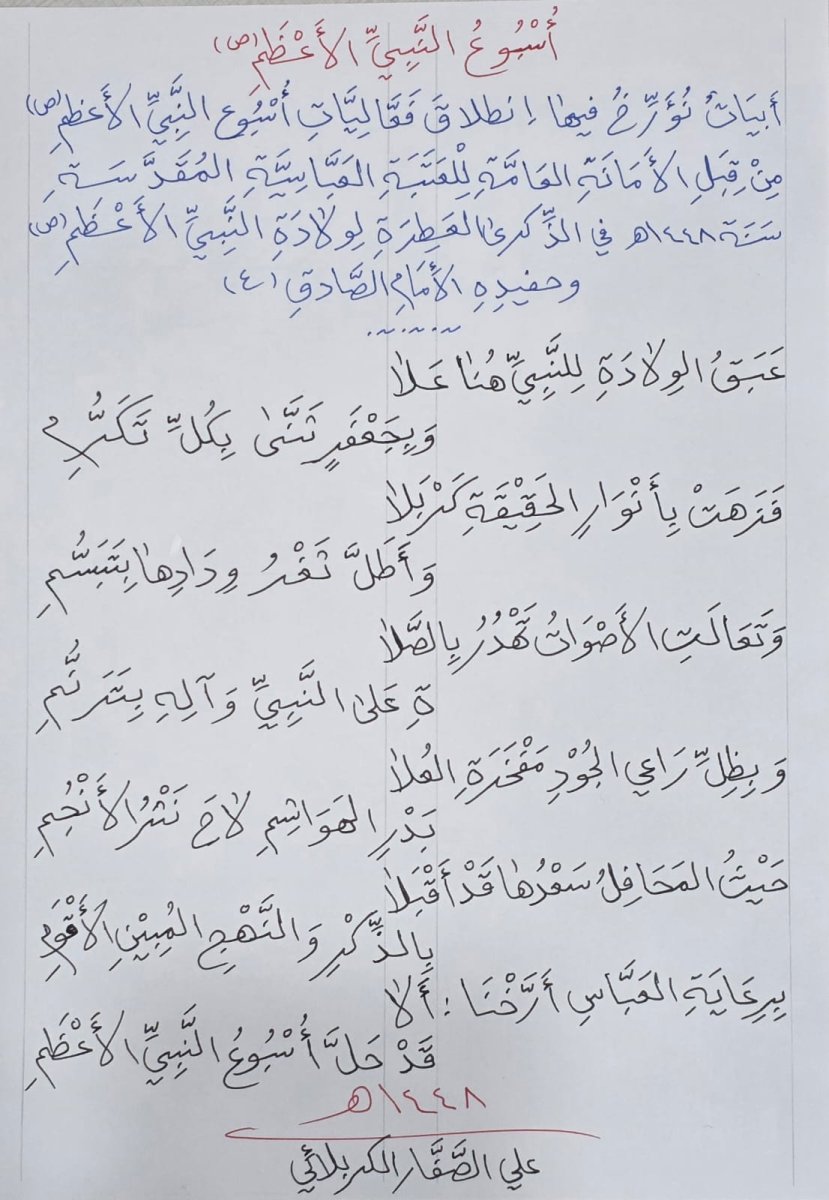 أُسْبُوعُ النَّبِيِّ الأَعْظَمِ (ص)
أَبيَاتٌ نُؤَرِّخُ فيها إنطلاقَ فَعَّالِيَّاتِ أُسْبُوع النَّبِيِّ الأَعظمِ (ص)
مِنْ قِبَلِ الأَمَانَةِ العَامَّةِ لِلْعَتَبَةِ العَبَّاسِيَّةِ المُقَدَّسَةِ
سَنَة ١٤٤٨هـ في الذِّكرىٰ العَطِرَةِ لِولادَةِ النَّبِيِّ الأَعْظَمِ (ص)
وحفيدِهِ الأمَامِ الصَّادقِ (ع)
عَبَقُ الوِلادَةِ لِلنَّبِيِّ هُنا عَلا
وَبِجَعْفَرٍ ثَنَّىٰ بِكُلِّ تَكَرُّمِ
فَزَهَتْ بِأَنْوَارِ الحَقِيْقَةِ كَرْبَلا
وَأَطَلَّ ثَغْرُ وِدَادِها بِتَبَسُّمِ
وَتَعَالَتِ الأَصْوَاتُ تَهْدُرُ بِالصَّلا
ةِ عَلىٰ النَّبِيِّ وَآلِهِ بِتَرَنُّمِ
وَبِظِلِّ رَاعي الجُوْدِ مَفْخَرَةِ العُلا
بَدْرِ الهَوَاشِمِ لاحَ نَثْرُ الأَنْجُمِ
حَيْثُ المَحَافِلُ سَعْدُها قَدْ أَقْبَلا
بِالذِّكْرِ وَالنَّهْجِ المُبِيْنِ الأَقْوَمِ
بِرِعَايَةِ العَبَّاسِ أَرَّخْنَا : أَلا
قَدْ حَلَّ أُسْبُوعُ النَّبِيِّ الأَعْظَمِ
١٤٤٨هـ
علي الصَّفَّار الكربلائي